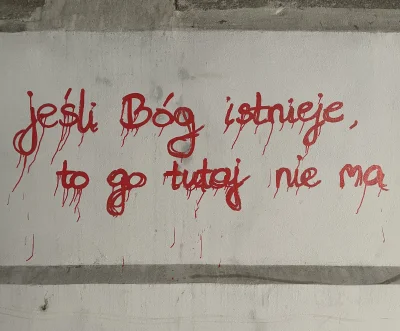 jeśli Bóg istnieje,
to go tutaj nie ma